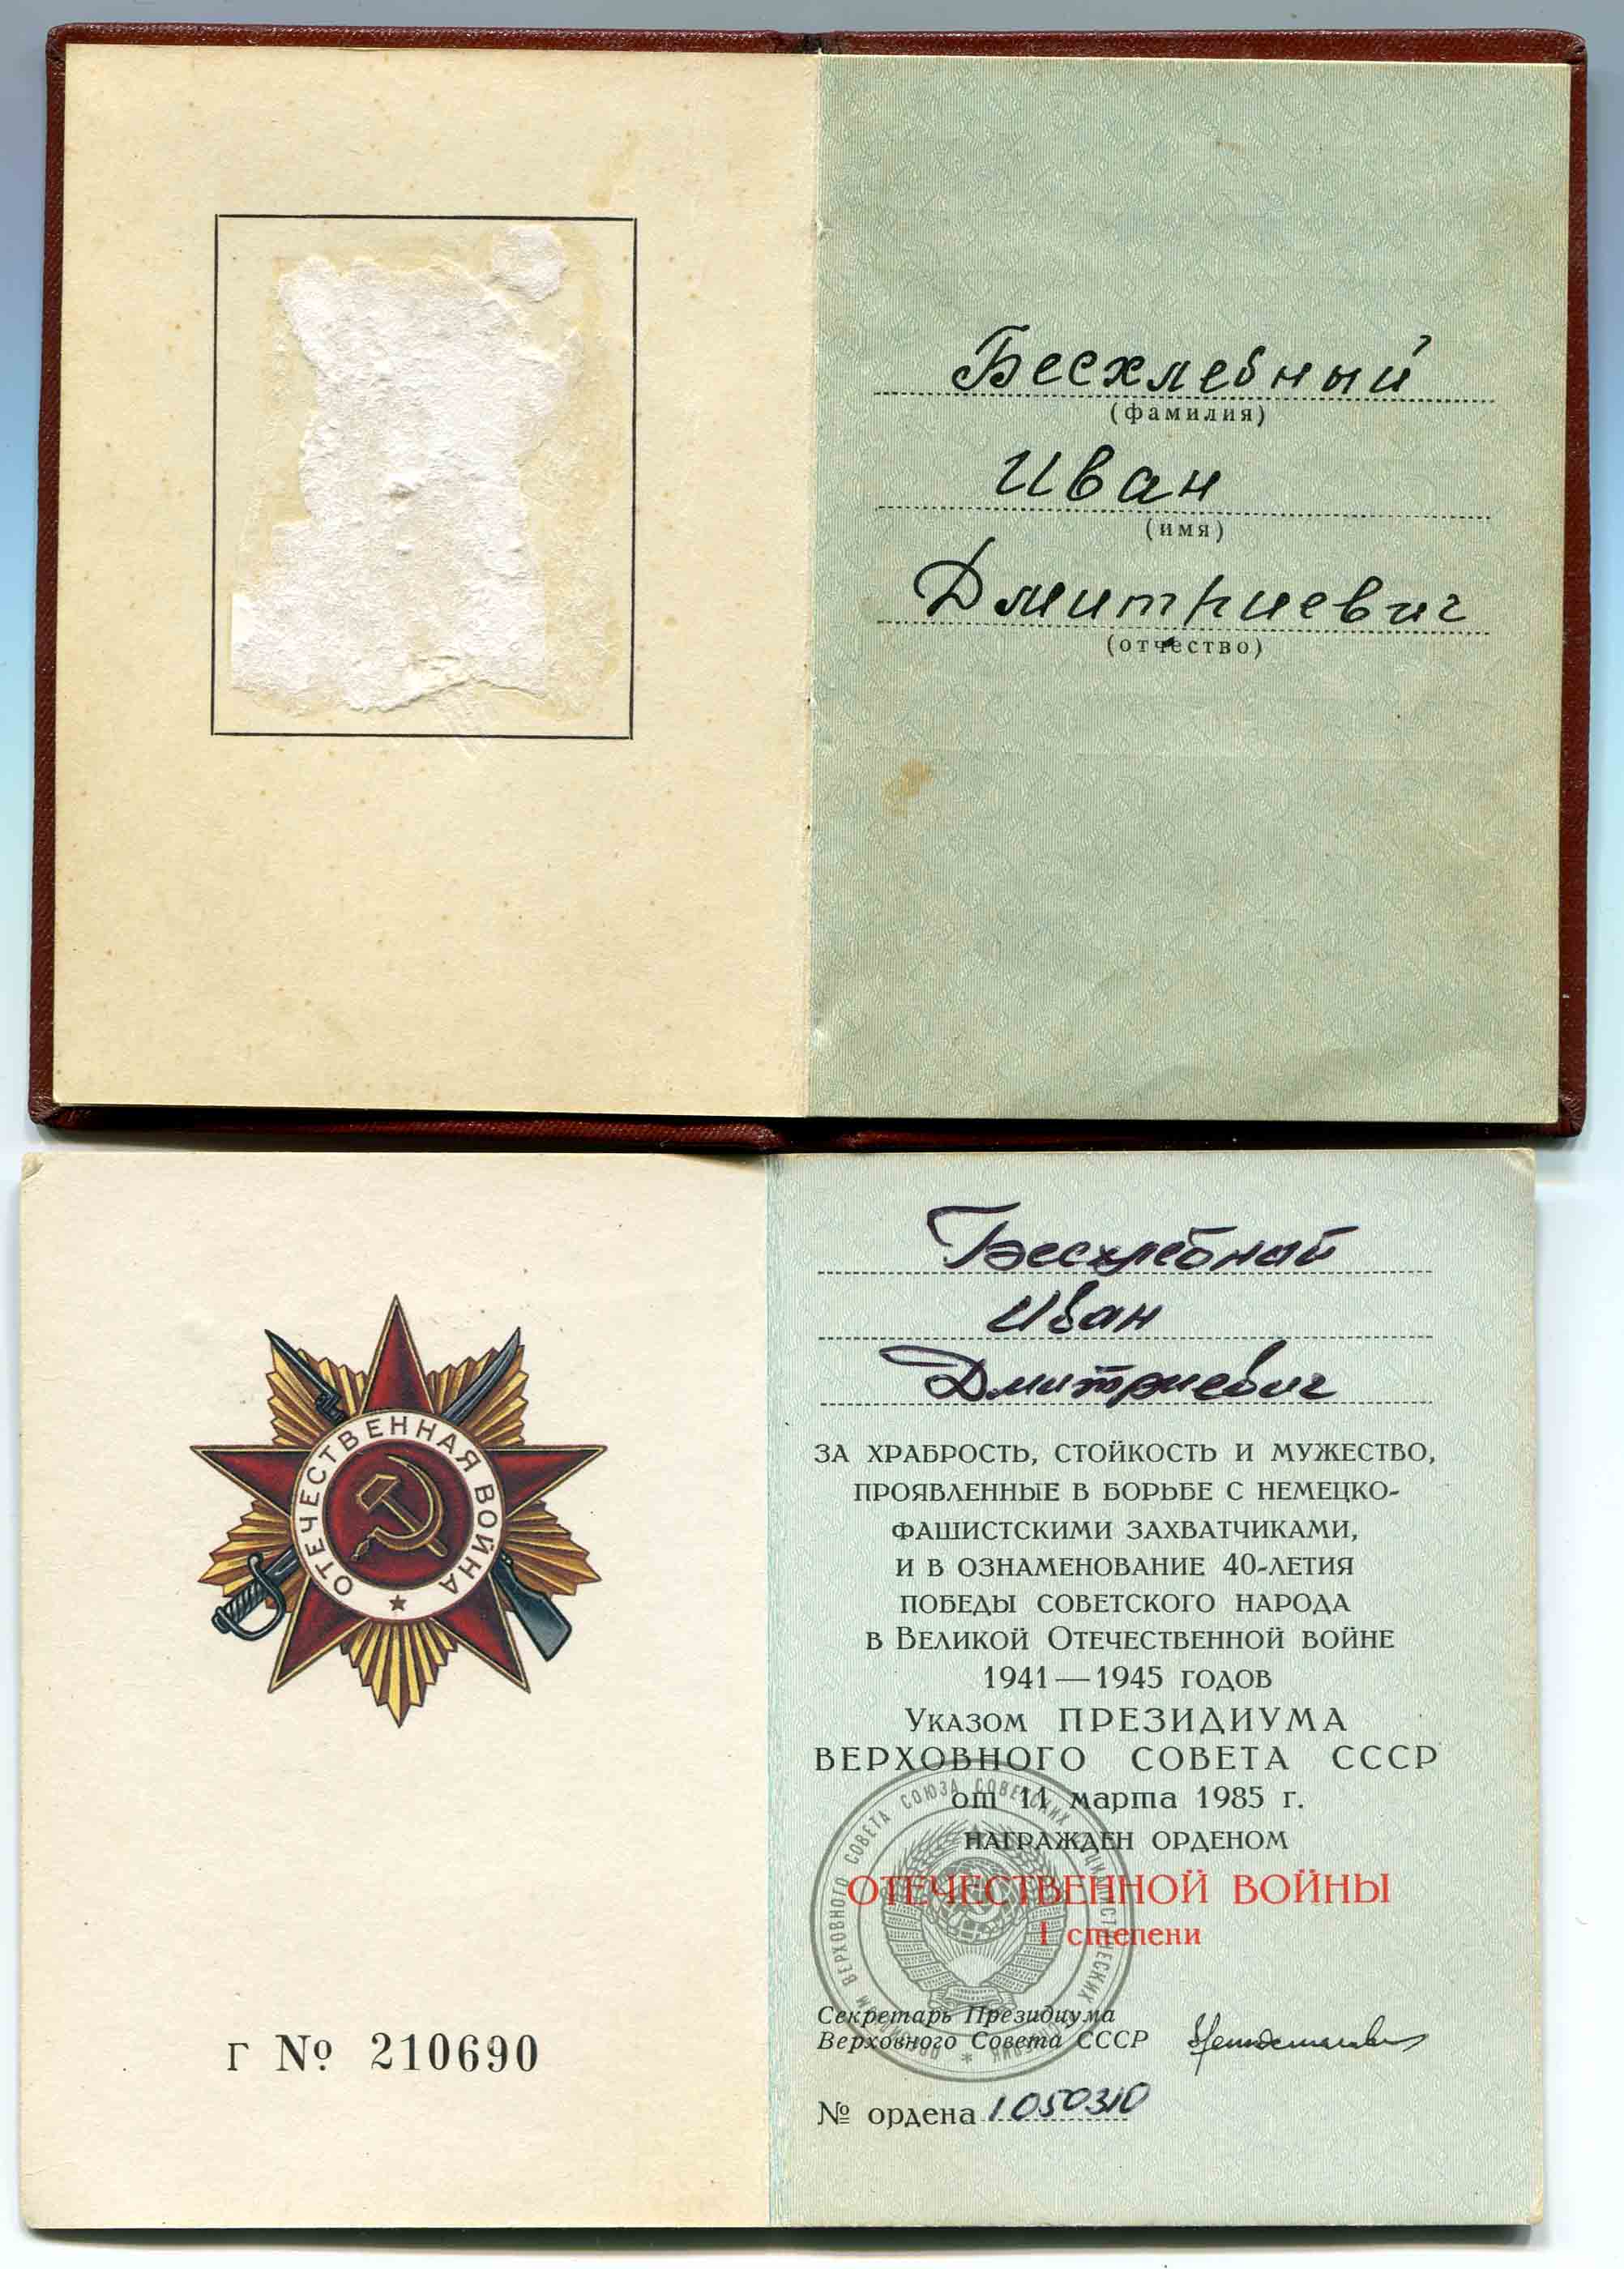 Бесхлебный
(фамилия)
Иван
(имя)
Дмитриевич
(отчество)
ОТЕЧЕСТВЕННАЯ ВОЙНА
Г № 210690
Бесхлебный
Иван
Дмитриевич
ЗА ХРАБРОСТЬ, СТОЙКОСТЬ И МУЖЕСТВО,
ПРОЯВЛЕННЫЕ В БОРЬБЕ С НЕМЕЦКО-
ФАШИСТСКИМИ ЗАХВАТЧИКАМИ,
И В ОЗНАМЕНОВАНИЕ 40-ЛЕТИЯ
ПОБЕДЫ СОВЕТСКОГО НАРОДА
В ВЕЛИКОЙ ОТЕЧЕСТВЕННОЙ ВОЙНЕ
1941—1945 ГОДОВ
УКАЗОМ ПРЕЗИДИУМА
ВЕРХОВНОГО СОВЕТА СССР
от 11 марта 1985 г.
НАГРАЖДЕН ОРДЕНОМ
ОТЕЧЕСТВЕННОЙ ВОЙНЫ
I степени
ПРЕЗИДИУМ ВЕРХОВНОГО СОВЕТА СОЮЗА СОВЕТСКИХ СОЦИАЛИСТИЧЕСКИХ РЕСПУБЛИК
Секретарь Президиума
Верховного Совета СССР
№ ордена 1050310